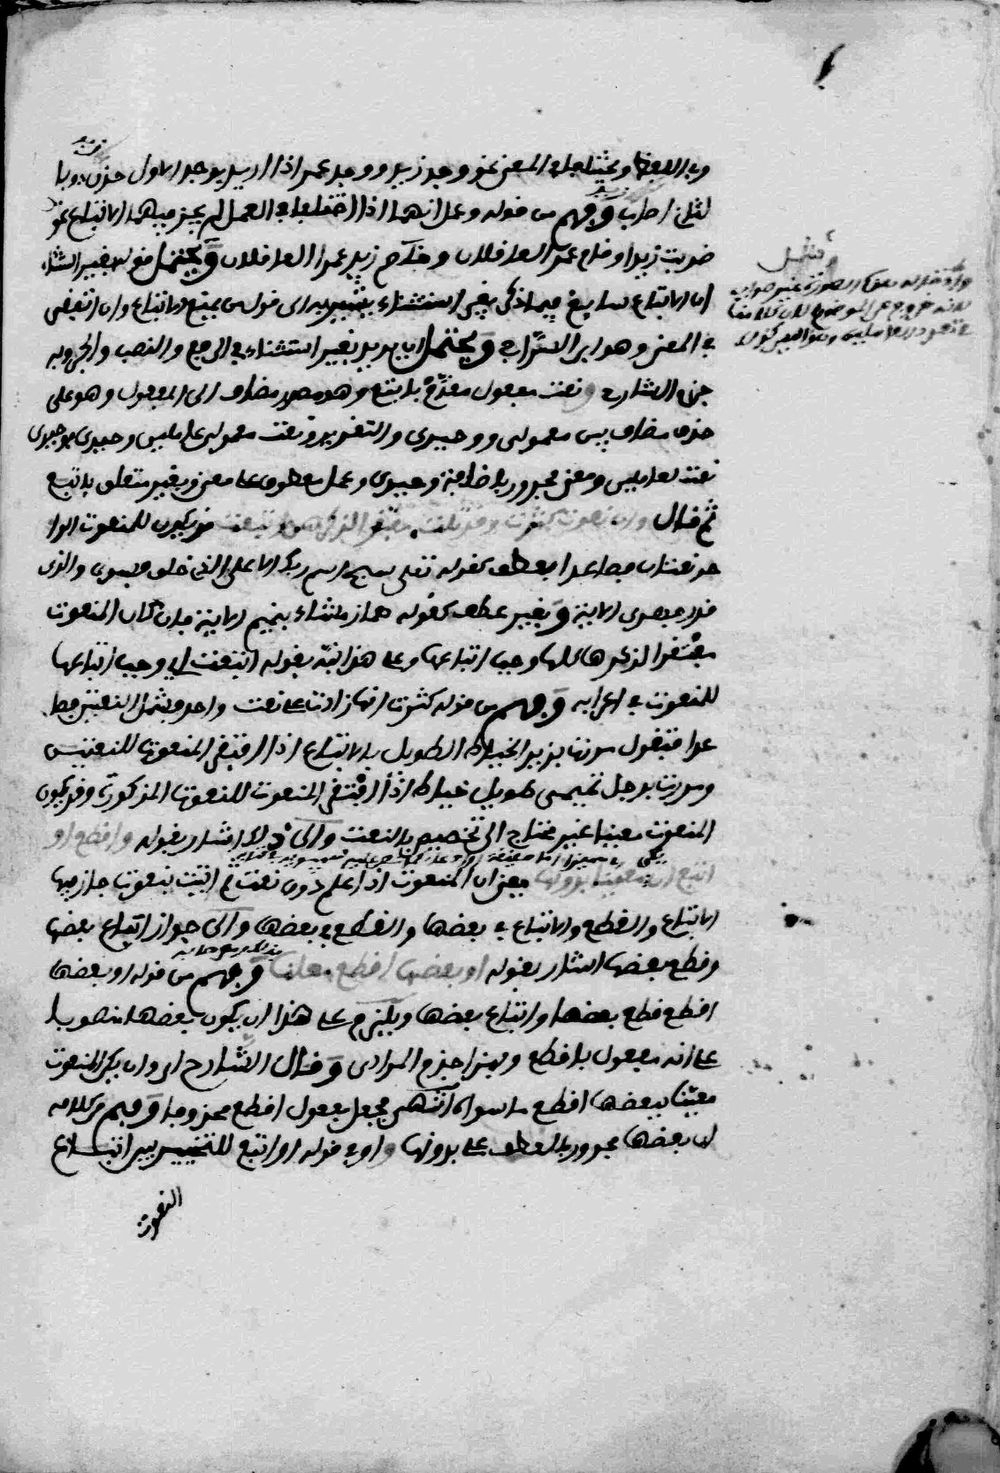 في اللفظ ومختلفا في المعنى نحو وجد زيد ووجد عمرو اذا اريد بوجد الاول حزن وبا
لثاني اصاب وفهم من قوله وعمل انهما اذا اختلفا في العمل لم يجز فيهما الاتباع نحو
ضربت زيدا وقام عمرو العاقلان وخاصم زيد عمرا العاقلان ويحتمل قوله بغير استثناء
ان الاتباع سايغ فيما ذكر بغير استثناء يشير به الى قول من يمنع الاتباع وان اتفقا
في المعنى وهو ابن السراج ويحتمل ان يريد بغير استثناء في الرفع والنصب والجر وبه
جزم الشارح ونعت مفعول مقدم باتبع وهو مصدر مضاف الى المفعول وهو على
حذف مضاف بين معمولي ووحيدي والتقدير ونعت معمولي عاملين وحيدي فوحيدي
نعت لعاملين ومعنى مجرور باضافة وحيدي وعمل معطوف على معنى وبغير متعلق باتبع
ثم قال وان نعوت كثرت وقد تلت مفتقرا لذكرهن اتبعت قد يكون للمنعوت الوا
حد نعتان فصاعدا بعطف كقوله تعلى سبح اسم ربك الاعلى الذي خلق فسوى والذي
قدر فهدى الاية وبغير عطف كقوله هماز مشاء بنميم الاية فان كان المنعوت
مفتقرا لذكرها كلها وجب اتباعها وعلى هذا نبه بقوله اتبعت اي وجب اتباعها
للمنعوت في اعرابه وفهم من قوله كثرت انها زادت على نعت واحد فيشمل النعتين فصا
عدا فتقول مررت بزيد الخياط الطويل بالاتباع اذا افتقر المنعوت للنعتين
ومررت برجل تميمي طويل خياط اذا افتقر المنعوت للنعوت المذكورة وقد يكون
المنعوت معينا غير محتاج الى تخصيص بالنعت والى ذلك اشار بقوله واقطع او
اتبع ان يكن معينا بدونها يعني ان المنعوت اذا علم دون نعت ثم اتيت بنعوت جاز فيها
الاتباع والقطع والاتباع في بعضها والقطع في بعضها والى جواز اتباع بعضها
وقطع بعضها اشار بقوله او بعضها اقطع معلنا وفهم من قوله او بعضها
اقطع قطع بعضها واتباع بعضها ويلزم على هذا ان يكون بعضها منصوبا
على انه مفعول باقطع وبهذا جزم المرادي وقال الشارح اي وان يكن المنعوت
معينا ببعضها اقطع ما سواه انتهى فجعل مفعول اقطع محذوفا وفهم من كلامه
ان بعضها مجرور بالعطف على بدونها واو في قوله او اتبع للتخيير بين اتباع
النعوت